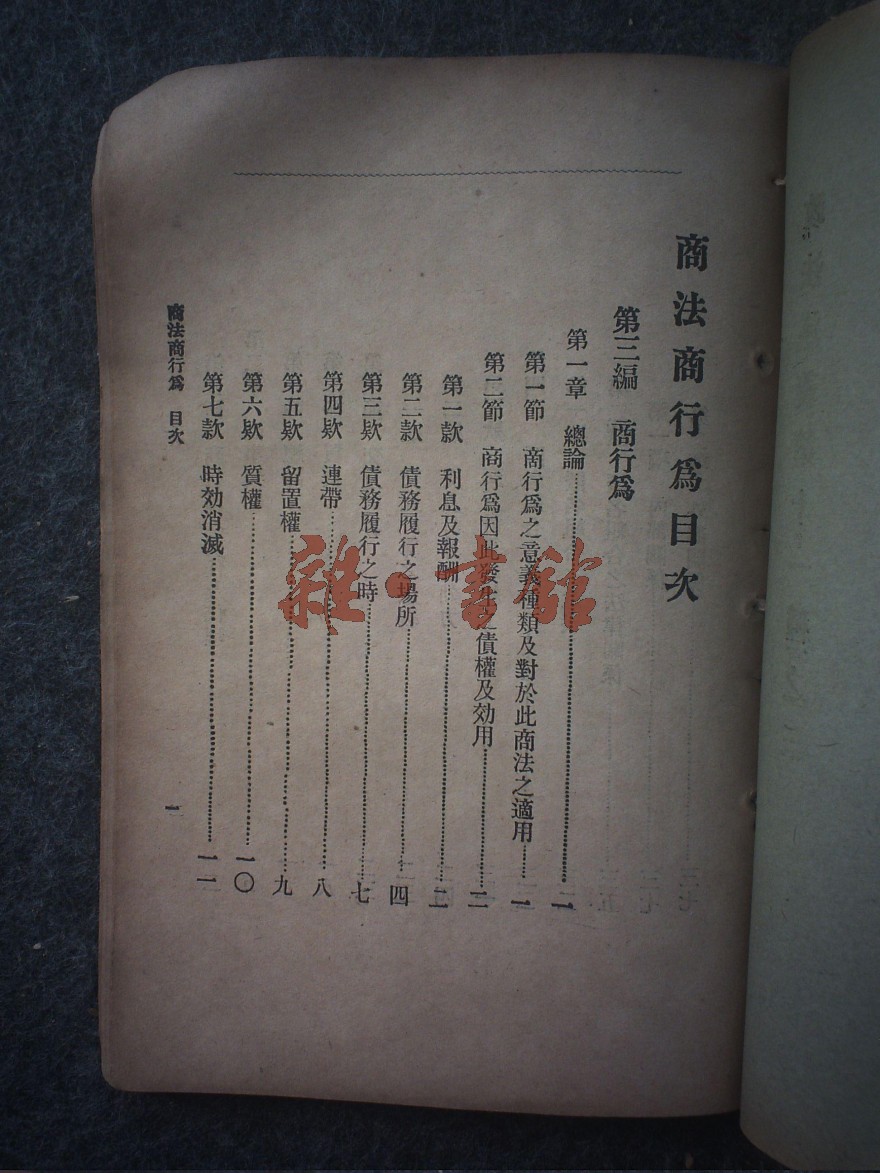 商法商行爲目次
第三編　商行爲
第一章　總論……一
第一節　商行爲之意義種類及對於此商法之適用……一
第二節　商行爲因此發生之債權及効用……二
第一款　利息及報酬……二
第二款　債務履行之場所……四
第三欵　債務履行之時……七
第四欵　連帶……八
第五欵　留置權……九
第六欵　質權……一〇
第七款　時効消滅……一一
商法商行爲　目次
一
雜·書館